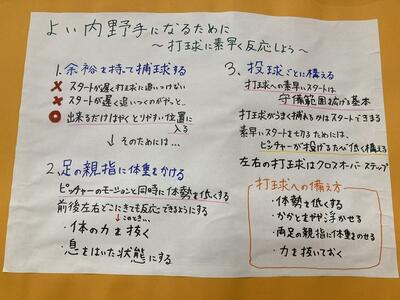 よい内野手になるために
～打球に素早く反応しよう～
1.余裕を持って捕球する
×スタートが遅く打球に追いつけない
×スタートが遅く追いつくのがやっと…
○出来るだけはやくとりやすい位置に
入る
↓そのためには…
2、足の親指に体重をかける
ピッチャーのモーションと同時に体勢を低くする
前後左右どこにきても反応できるようにする
↓このとき…
・体の力を抜く
・息をはいた状態にする
3、投球ごとに構える
打球への素早いスタートは
守備範囲を広げる基本
打球がうまく捕れるかはスタートできまる
素早いスタートを切るためには、
ピッチャーが投げるたんび低く構える
左右の打球はクロスオーバーステップ
打球への備え方
・体勢を低くする
・かかとをやや浮かせる
・両足の親指に体重をのせる
・力を抜いておく